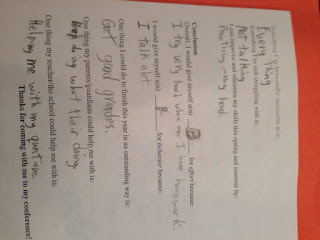 really successful at is:
Every thing
I'm still struggling with is:
Not talking
can improve and maintain my skills this spring and summer by:
in my head.
Conclusion
Overall, I would give myself a(n) B for effort because:
I try very hard when ever I have homework.
I would give myself a(n) B for behavior because:
I talk alot
One thing I could do to finish this year in an outstanding way is:
Get good grades.
One thing my parents/guardians could help me with is:
keep doing what their doing
One thing my teacher/the school could help me with is:
Helping me with my questions.
Thanks for coming with me to my conference!